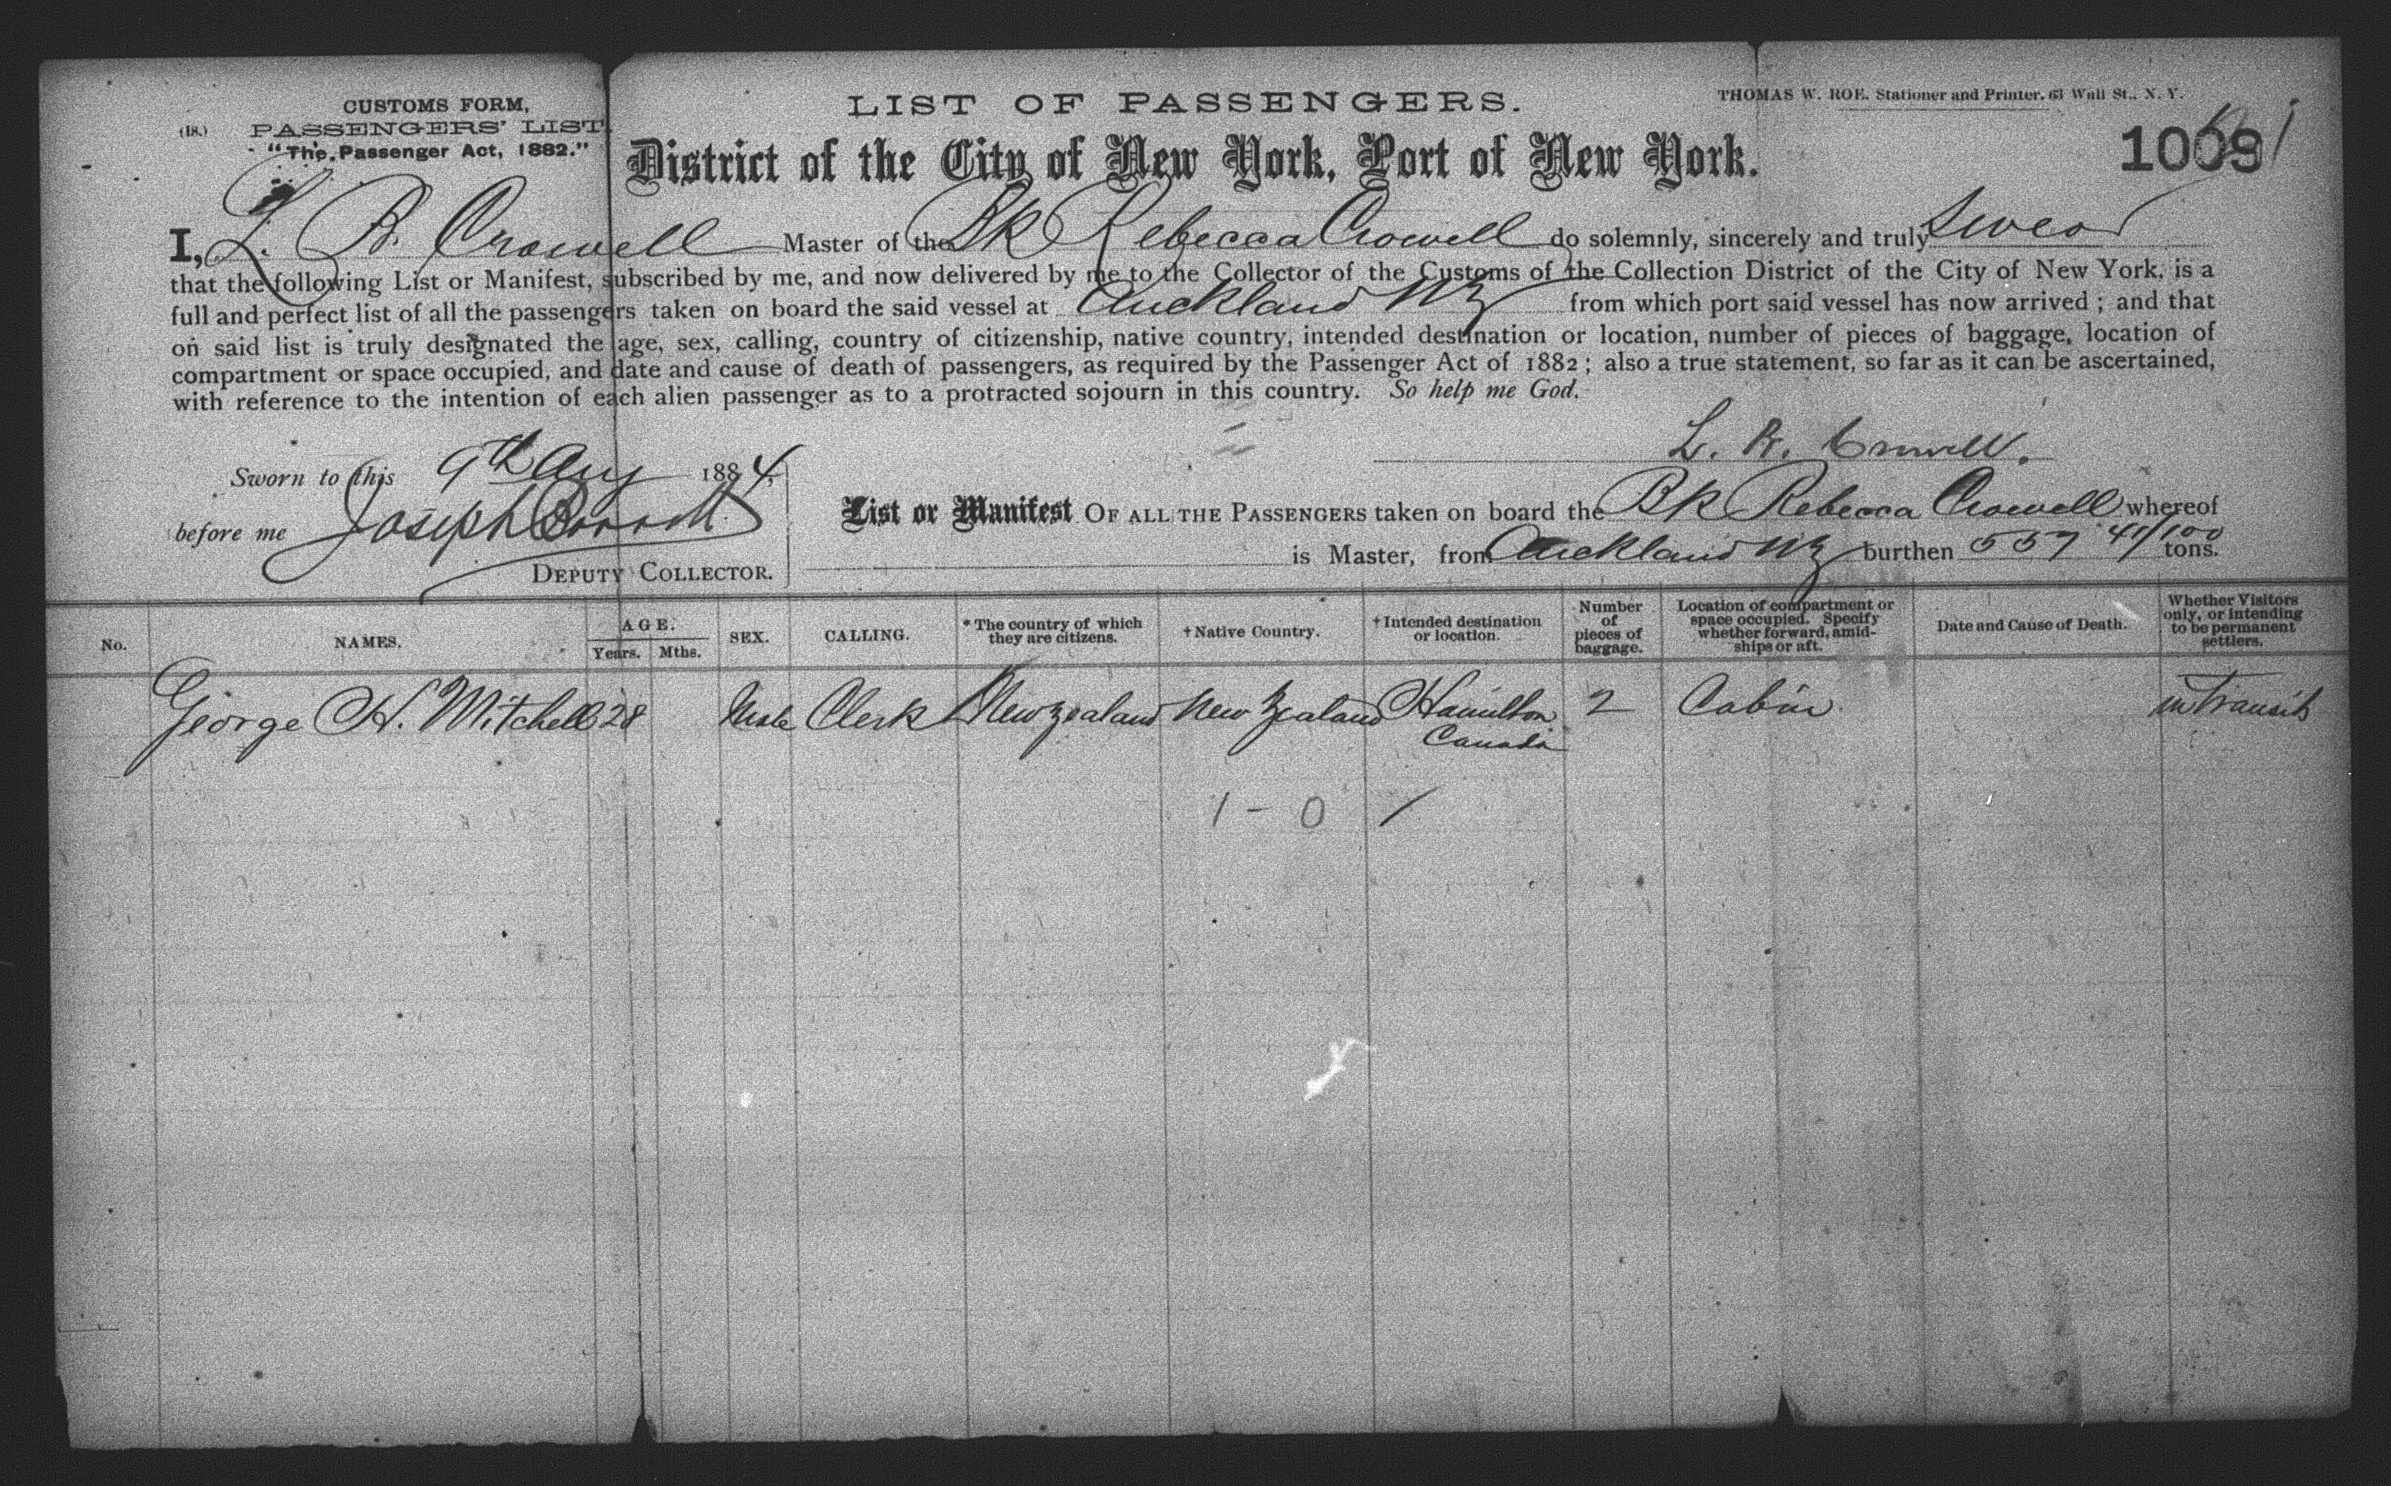 CUSTOMS FORM,
(18.) PASSENGERS' LIST.
"The Passenger Act, 1882."
LIST OF PASSENGERS.
THOMAS W. ROE. Stationer and Printer. 63 Wall St., N. Y.
District of the City of New York, Port of New York.
1009
I, L. B. Crowell Master of the Bk Rebecca Crowell do solemnly, sincerely and truly swear
that the following List or Manifest, subscribed by me, and now delivered by me to the Collector of the Customs of the Collection District of the City of New York, is a
full and perfect list of all the passengers taken on board the said vessel at Auckland NZ from which port said vessel has now arrived ; and that
on said list is truly designated the age, sex, calling, country of citizenship, native country, intended destination or location, number of pieces of baggage, location of
compartment or space occupied, and date and cause of death of passengers, as required by the Passenger Act of 1882 ; also a true statement, so far as it can be ascertained,
with reference to the intention of each alien passenger as to a protracted sojourn in this country. So help me God.
L. B. Crowell.
Sworn to this 9th Aug 1884,
before me Joseph
DEPUTY COLLECTOR.
List or Manifest OF ALL THE PASSENGERS taken on board the Bk Rebecca Crowell whereof
is Master, from Auckland NZ burthen 557 41/100 tons.
No. NAMES. AGE. Years. Mths. SEX. CALLING. * The country of which they are citizens. † Native Country. † Intended destination or location. Number of pieces of baggage. Location of compartment or space occupied. Specify whether forward, amidships or aft. Date and Cause of Death. Whether Visitors only, or intending to be permanent settlers.
George H. Mitchell 28 Male Clerk New Zealand New Zealand Hamilton 2 Cabin in Transit
Canada
1 - 0 /